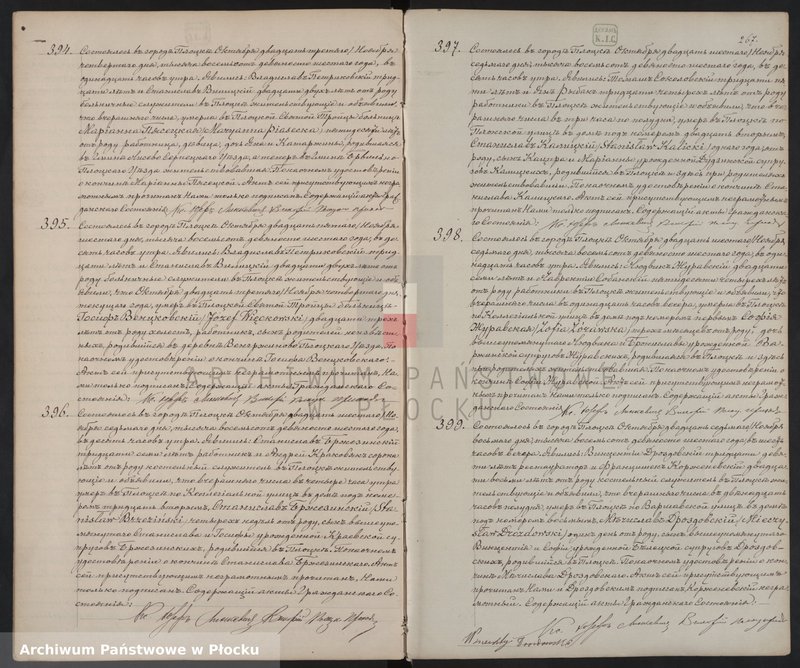 394. Состоялось въ городѣ Плоцкѣ Октября двадцать третьяго/Ноября
четвертаго дня, тысяча восемьсотъ девяносто шестаго года, въ
одинадцать часовъ утра. Явились: Владиславъ Петриковскій трид-
цати лѣтъ и Станиславъ двадцати двухъ лѣтъ отъ роду
больничные служители въ Плоцкѣ жительствующіе и объявили,
что вчерашняго числа, умерла въ Плоцкой Святой Троицы больницѣ
Маріанна Пясецкая /Maryanna Piasecka/
отъ роду, работница, дѣвица, дочь
Плоцкаго Уѣзда жительствовавшая. По настоящемъ удостовѣреніи
о кончинѣ Маріанны Пясецкой. Актъ сей присутствующимъ негра-
мотнымъ прочитанъ Нами только подписанъ. Содержащій акты Граж-
данскаго Состоянія:
395. Состоялось въ городѣ Плоцкѣ Октября двадцать пятаго/Ноября
шестаго дня, тысяча восемьсотъ девяносто шестаго года, въ де-
сять часовъ утра. Явились: Владиславъ Петриковскій трид-
цати лѣтъ и Станиславъ двадцати двухъ лѣтъ отъ
роду больничные служители въ Плоцкѣ жительствующіе и объ-
явили, что Октября двадцать третьяго/Ноября четвертаго дня
текущаго года, умеръ въ Плоцкой Святой Троицы больницѣ
Іосифъ Венцковскій /Józef Więckowski/ двадцати трехъ
лѣтъ отъ роду холостъ, работникъ, сынъ родителей неизвѣст-
ныхъ, родившійся въ деревнѣ Плоцкаго Уѣзда. По
настоящемъ удостовѣреніи о кончинѣ Іосифа Венцковскаго.
Актъ сей присутствующимъ неграмотнымъ прочитанъ, На-
ми только подписанъ. Содержащій акты Гражданскаго Со-
стоянія:
396. Состоялось въ городѣ Плоцкѣ Октября двадцать шестаго/Но-
ября седьмаго дня, тысяча восемьсотъ девяносто шестаго года,
въ десять часовъ утра. Явились: Станиславъ Бржезинскій
тридцати семи лѣтъ работникъ и Андрей сорока
лѣтъ отъ роду костельный служитель въ Плоцкѣ жительству-
ющіе и объявили, что вчерашняго числа въ четыре часа утра
умеръ въ Плоцкѣ по Коллегіальной улицѣ въ домѣ подъ номе-
ромъ тридцать вторымъ, Станиславъ Бржезинскій /Sta-
nisław Brzeziński/ четырехъ недѣль отъ роду, сынъ вышеупо-
мянутаго Станислава и урожденной су-
пруговъ Бржезинскихъ, родившійся въ Плоцкѣ. По настоящемъ
удостовѣреніи о кончинѣ Станислава Бржезинскаго. Актъ
сей присутствующимъ неграмотнымъ прочитанъ, Нами
только подписанъ. Содержащій акты Гражданскаго Со-
стоянія:
267.
397. Состоялось въ городѣ Плоцкѣ Октября двадцать шестаго/Ноября
седьмаго дня, тысяча восемьсотъ девяносто шестаго года, въ де-
сять часовъ утра. Явились: Соколовскій тридцати пя-
ти лѣтъ и Янъ Рыбакъ тридцати четырехъ лѣтъ отъ роду
работники въ Плоцкѣ жительствующіе и объявили, что вче-
рашняго числа въ три часа по полудни, умеръ въ Плоцкѣ по
улицѣ въ домѣ подъ номеромъ двадцать вторымъ,
Станиславъ Калицкій /Stanisław Kalicki/ однаго года отъ
роду, сынъ и Маріанны, урожденной супру-
говъ Калицкихъ, родившійся въ Плоцкѣ и здѣсь при родителяхъ
жительствовавшій. По настоящемъ удостовѣреніи о кончинѣ Ста-
нислава Калицкаго. Актъ сей присутствующимъ неграмотнымъ
прочитанъ Нами только подписанъ. Содержащій акты Гражданска-
го Состоянія:
398. Состоялось въ городѣ Плоцкѣ Октября двадцать шестаго/Ноября
седьмаго дня, тысяча восемьсотъ девяносто шестаго года, въ оди-
надцать часовъ утра. Явились: Людвикъ Журавскій двадцати
семи лѣтъ и лѣтъ
отъ роду работники въ Плоцкѣ жительствующіе и объявили, что
вчерашняго числа въ одинадцать часовъ вечера, умерла въ Плоцкѣ
по Коллегіальной улицѣ въ домѣ подъ номеромъ первымъ Софія
Журавская /Zofia Żórawska/ трехъ мѣсяцевъ отъ роду, дочь
вышеупомянутаго Людвика и урожденной
супруговъ Журавскихъ, родившаяся въ Плоцкѣ и здѣсь
при родителяхъ жительствовавшая. По настоящемъ удостовѣреніи о
кончинѣ Софіи Журавской. Актъ сей присутствующимъ неграмот-
нымъ прочитанъ Нами только подписанъ. Содержащій акты Граж-
данскаго Состоянія:
399. Состоялось въ городѣ Плоцкѣ Октября двадцать седьмаго/Ноября
восьмаго дня, тысяча восемьсотъ девяносто шестаго года, въ
часовъ вечера. Явились: Викентій Дроздовскій тридцати девя-
ти лѣтъ реставраторъ и Францишекъ Корженевскій двадца-
ти восьми лѣтъ отъ роду костельный служитель въ Плоцкѣ жи-
тельствующіе и объявили, что вчерашняго числа, въ двѣнадцать
часовъ полудня, умеръ въ Плоцкѣ по Варшавской улицѣ въ домѣ
подъ номеромъ восьмымъ, Мѣчиславъ Дроздовскій /Mieczy-
sław Drozdowski/ одинъ день отъ роду, сынъ вышеупомянутаго
Викентія и Софіи, урожденной Бѣлецкой супруговъ Дроздов-
скихъ, родившійся въ Плоцкѣ. По настоящемъ удостовѣреніи о кон-
чинѣ Мѣчислава Дроздовскаго. Актъ сей присутствующимъ
прочитанъ Нами и Дроздовскимъ подписанъ Корженевскій негра-
мотный. Содержащій акты Гражданскаго Состоянія:
ARCHIWUM PAŃSTWOWE
W PŁOCKU
Archiwum Państwowe w Płocku